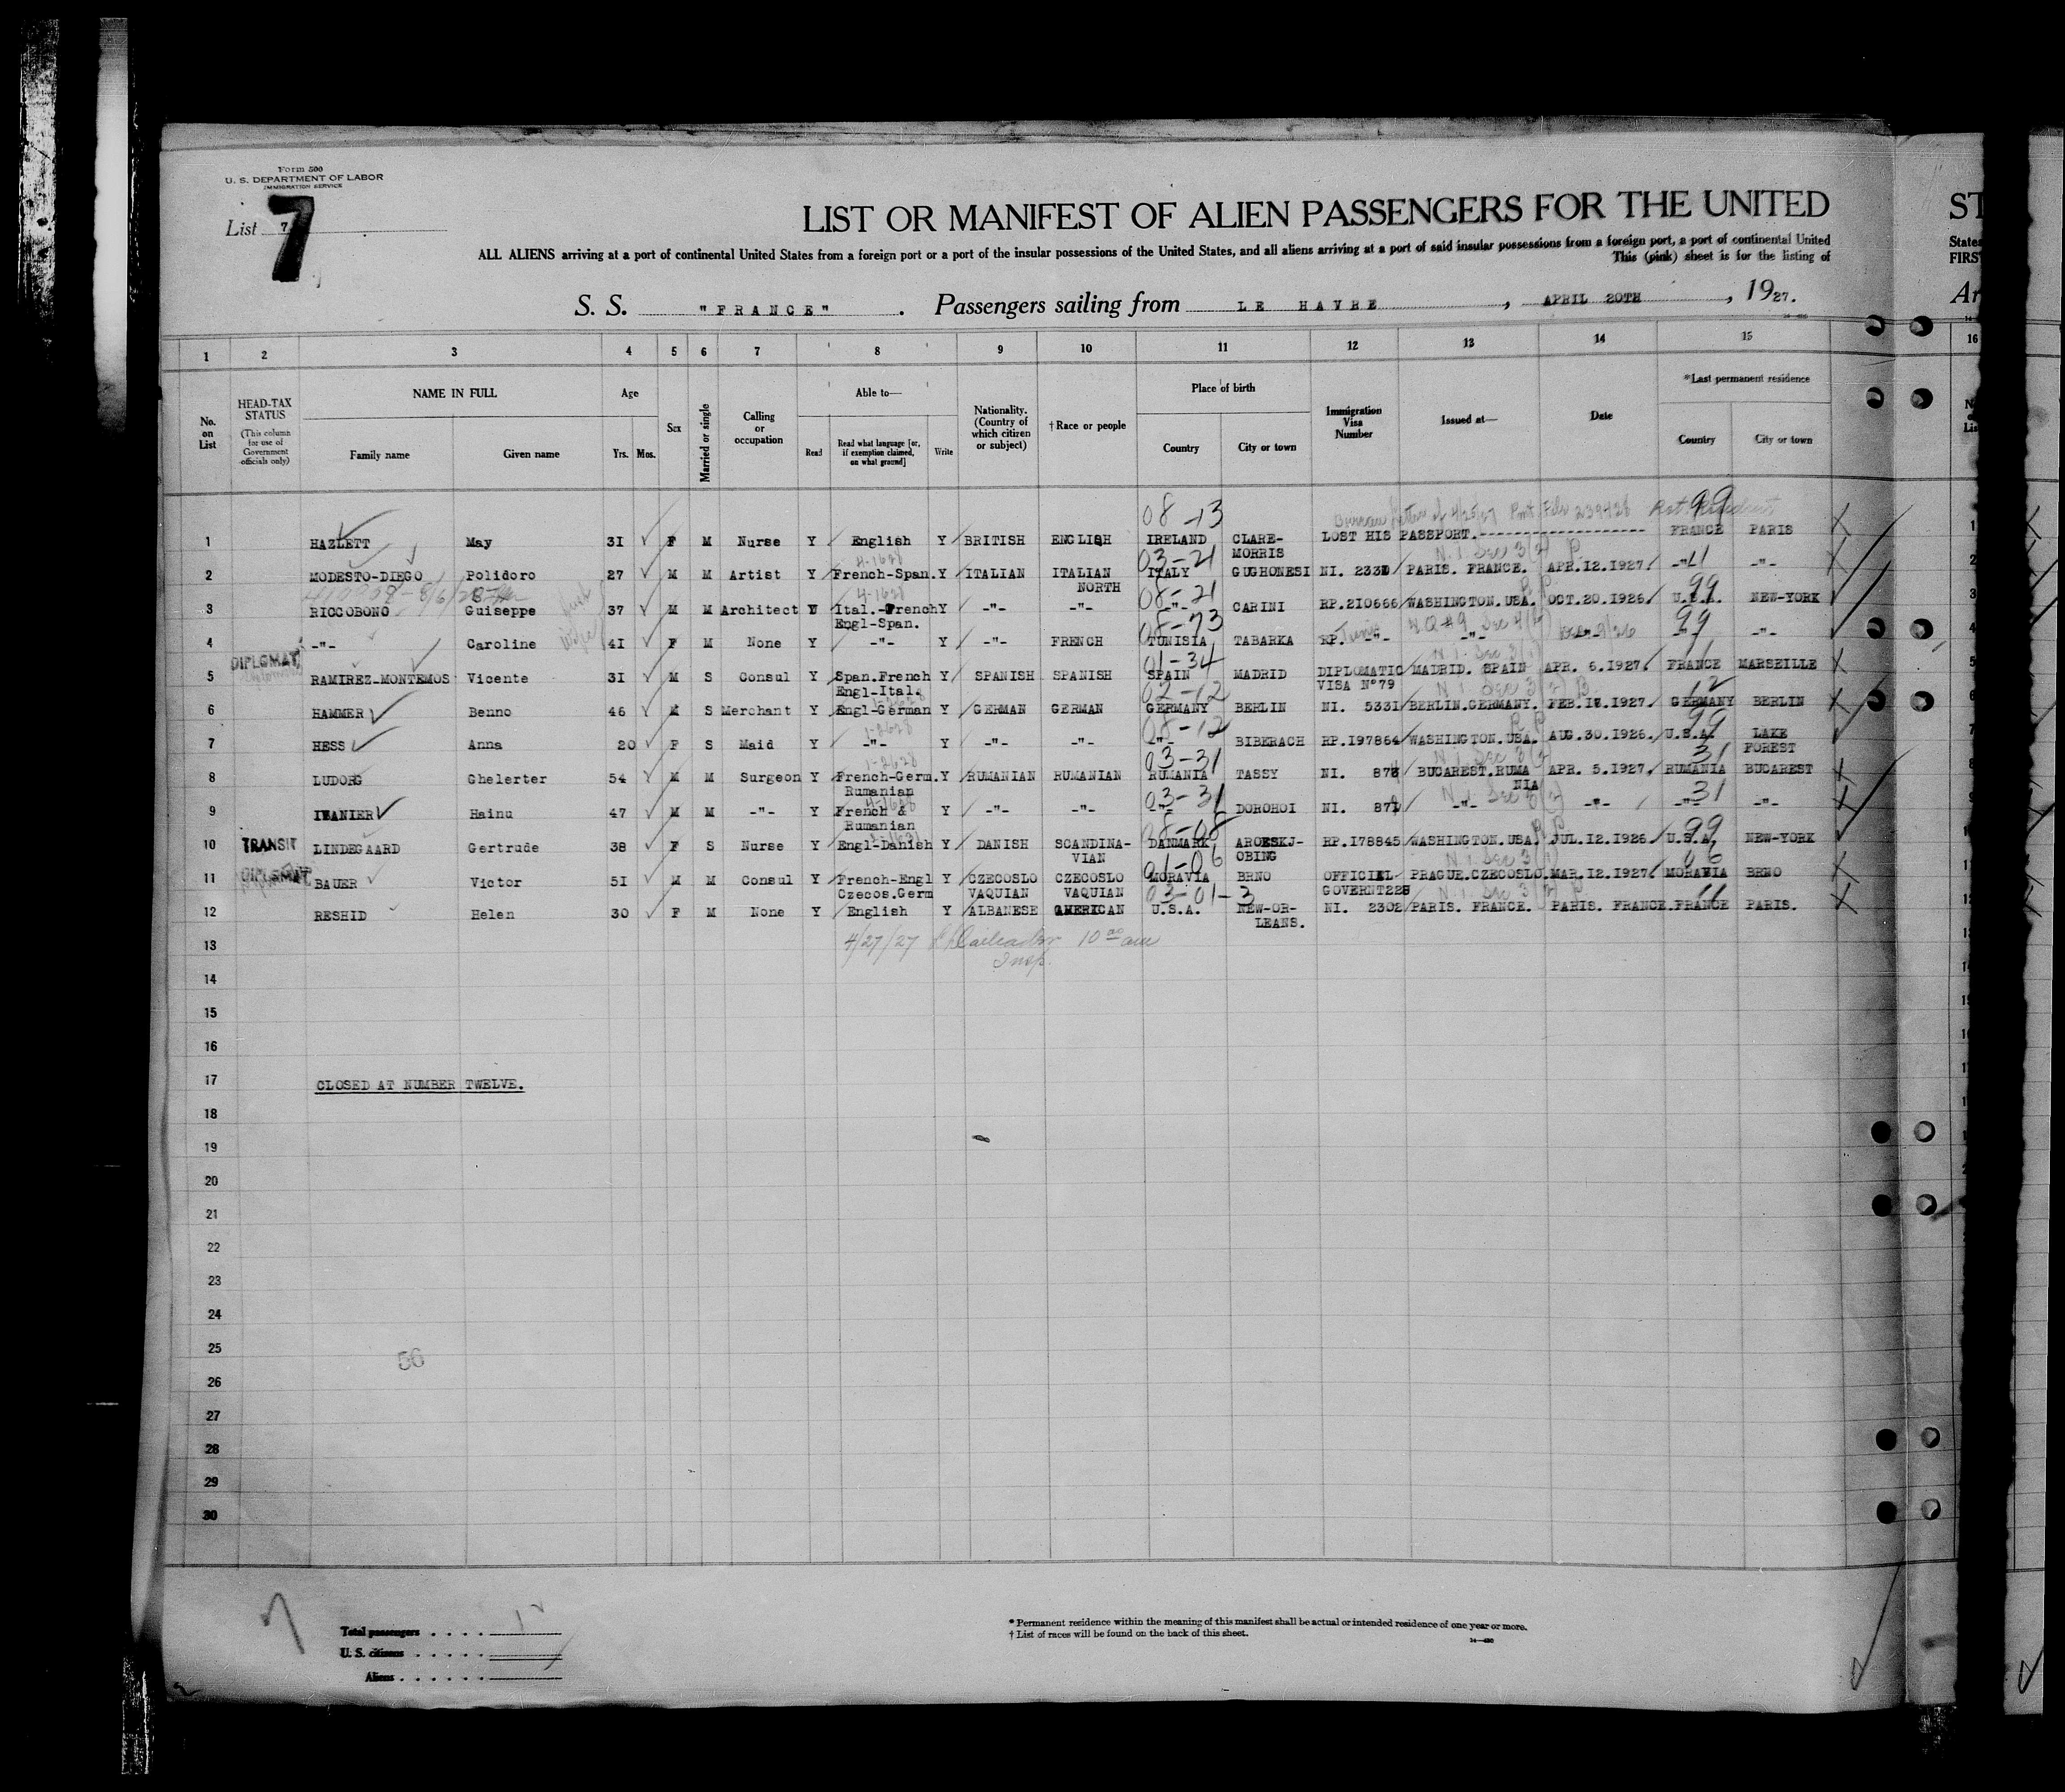 Form 500
U. S. DEPARTMENT OF LABOR
IMMIGRATION SERVICE
List 7
7
LIST OR MANIFEST OF ALIEN PASSENGERS FOR THE UNITED
ST
ALL ALIENS arriving at a port of continental United States from a foreign port or a port of the insular possessions of the United States, and all aliens arriving at a port of said insular possessions from a foreign port, a port of continental United
States
This (pink) sheet is for the listing of
FIRS
S. S. "FRANCE". Passengers sailing from LE HAVRE, APRIL 20TH, 1927.
Ar
1 2 3 4 5 6 7 8 9 10 11 12 13 14 15 16
No. on List
HEAD-TAX STATUS
(This column for use of Government officials only)
NAME IN FULL
Family name Given name
Age
Yrs. Mos.
Sex
Married or single
Calling or occupation
Able to—
Read
Read what language [or, if exemption claimed, on what ground]
Write
Nationality. (Country of which citizen or subject)
† Race or people
Place of birth
Country City or town
Immigration Visa Number
Issued at—
Date
*Last permanent residence
Country City or town
08-13 99
1 HAZLETT May 31 F M Nurse Y English Y BRITISH ENGLISH IRELAND CLARE-MORRIS LOST HIS PASSPORT. FRANCE PARIS
4-1628 03-21 N.I. Sec 3(2) P
2 MODESTO-DIEGO Polidoro 27 M M Artist Y French-Span. Y ITALIAN ITALIAN NORTH ITALY GUGHONESI NI. 2331 PARIS. FRANCE. APR.12.1927. -"- 11 -"-
4-1628 08-21 99
3 RICCOBONO Guiseppe 37 M M Architect Y Ital.-French Engl-Span. Y -"- -"- -"- CARINI RP.210666 WASHINGTON.USA. OCT.20.1926. U.S.A. NEW-YORK
08-73 99
4 -"- Caroline 41 F M None Y -"- Y -"- FRENCH TUNISIA TABARKA RP. -"- -"- -"- -"-
DIPLOMAT 01-34
5 RAMIREZ-MONTEMOS Vicente 31 M S Consul Y Span.French Engl-Ital. Y SPANISH SPANISH SPAIN MADRID DIPLOMATIC VISA N°79 MADRID. SPAIN APR. 6.1927. FRANCE MARSEILLE
02-12 N.I. Sec 3(2) B 12
6 HAMMER Benno 46 M S Merchant Y Engl-German Y GERMAN GERMAN GERMANY BERLIN NI. 5331 BERLIN.GERMANY. FEB.18.1927. GERMANY BERLIN
1-2628 08-12 99
7 HESS Anna 20 F S Maid Y -"- Y -"- -"- -"- BIBERACH RP.197864 WASHINGTON.USA. AUG.30.1926. U.S.A. LAKE FOREST
1-2628 03-31 31
8 LUDORG Ghelerter 54 M M Surgeon Y French-Germ. Rumanian Y RUMANIAN RUMANIAN RUMANIA TASSY NI. 878 BUCAREST.RUMANIA APR. 5.1927. RUMANIA BUCAREST
03-31 31
9 IVANIER Hainu 47 M M -"- Y French & Rumanian Y -"- -"- -"- DOROHOI NI. 879 -"- -"- -"- -"-
TRANSIT 08-08 99
10 LINDEGAARD Gertrude 38 F S Nurse Y Engl-Danish Y DANISH SCANDINA-VIAN DANMARK AROESKJ-OBING RP.178845 WASHINGTON.USA. JUL.12.1926. U.S.A. NEW-YORK
DIPLOMAT 01-06 06
11 BAUER Victor 51 M M Consul Y French-Engl Czecos.Germ Y CZECOSLO VAQUIAN CZECOSLO VAQUIAN MORAVIA BRNO OFFICIEL GOVERNT228 PRAGUE.CZECOSLO. MAR.12.1927. MORAVIA BRNO
03-01-3 N.I. Sec 3(2) P 11
12 RESHID Helen 30 F M None Y English Y ALBANESE AMERICAN U.S.A. NEW-OR-LEANS. NI. 2302 PARIS. FRANCE. PARIS. FRANCE. FRANCE PARIS.
13 4/27/27 10 00 am
Insp.
14
15
16
17 CLOSED AT NUMBER TWELVE.
18
19
20
21
22
23
24
25
56
26
27
28
29
30
7
Total passengers
U. S. citizens
Aliens
* Permanent residence within the meaning of this manifest shall be actual or intended residence of one year or more.
† List of races will be found on the back of this sheet.